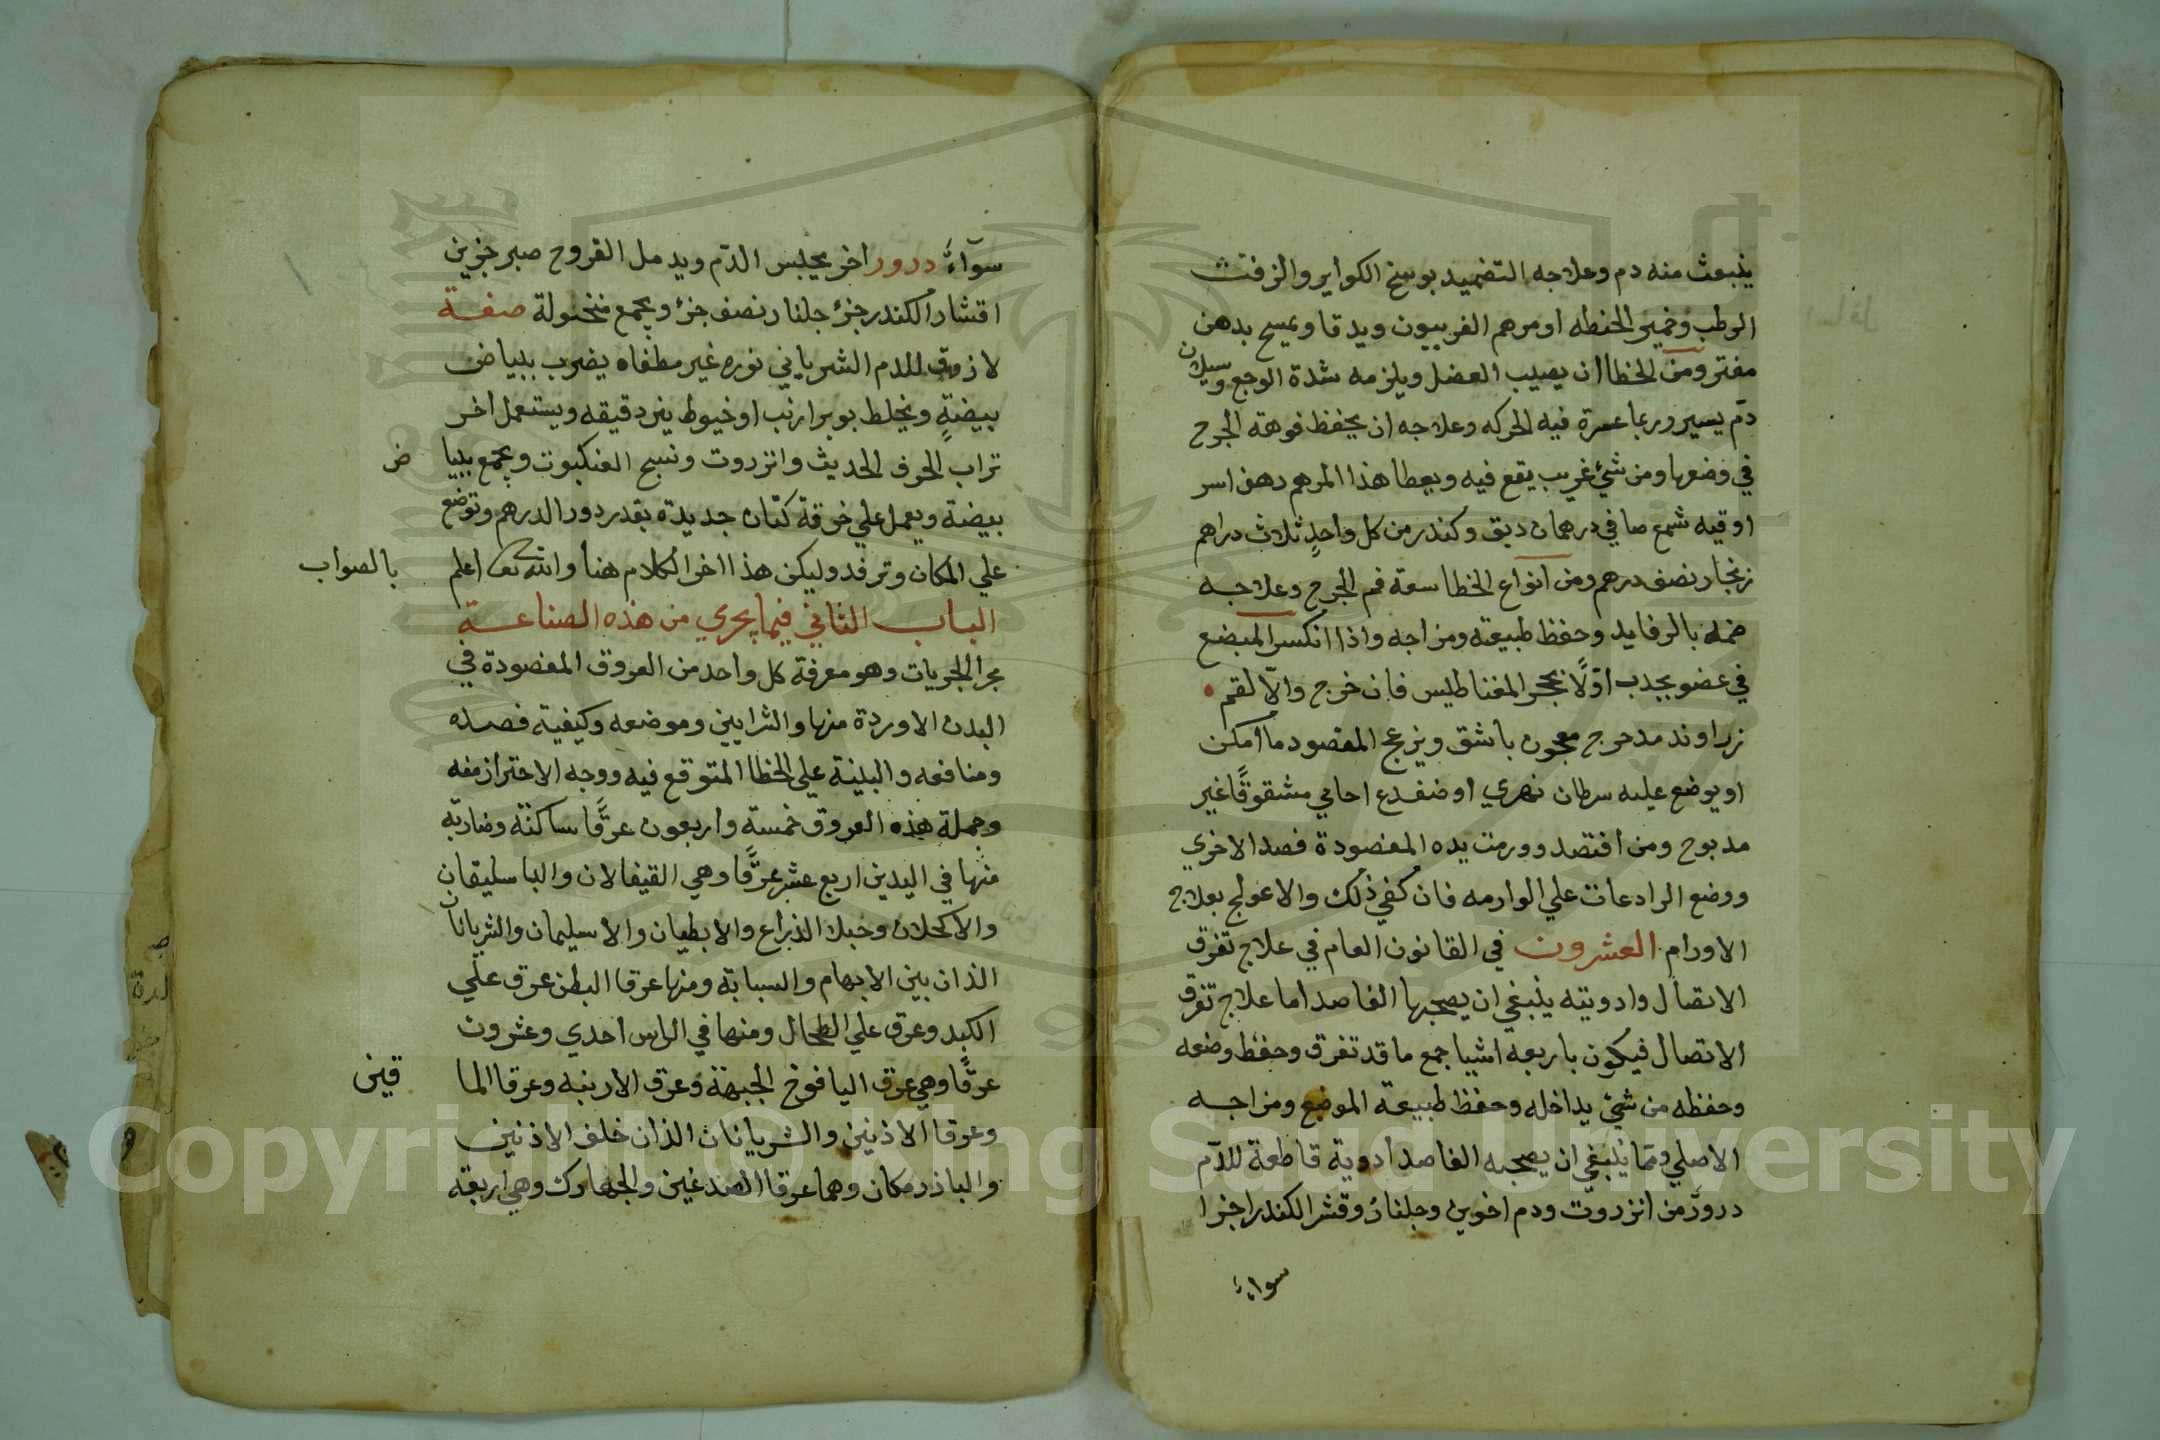 ينبعث منه دم وعلاجه التضميد بوسخ الكواير والزفت
الرطب وخمير الحنطه او مرهم الفربيون ويدقا ويمسح بدهن
مفتر ومن الخطا ان يصيب العضل ويلزمه شدة الوجع وسيلان
دم يسير وربما عسرة فيه الحركه وعلاجه ان يحفظ فوهة الجرح
في وضعها ومن شئ غريب يقع فيه ويعطا هذا المرهم دهن اسر
اوقيه شمع صافي درهمان دبق وكندر من كل واحدٍ ثلاث دراهم
زنجار نصف درهم ومن انواع الخطا سعة فم الجرح وعلاجه
ضمه بالرفايد وحفظ طبيعته ومزاجه واذا انكسر المبضع
في عضو يجدب اوّلاً بحجر المغناطيس فان خرج والا لقم
زراوند مدحرج معجون باشق ويزعج المفصود ما امكن
او يوضع عليه سرطان نهري او ضفدع احامي مشقوقًا غير
مدبوح ومن افتصد وورمت يده المفصودة فصد الاخري
ووضع الرادعات علي الوارمه فان كفي ذلك والا عولج بعلاج
الاورام العشرون في القانون العام في علاج تفرق
الاتصال وادويته ينبغي ان يصحبها الفاصد اما علاج تفرق
الاتصال فيكون باربعه اشيا جمع ما قد تفرق وحفظ وضعه
وحفظه من شئ يداخله وحفظ طبيعة الموضع ومزاجه
الاصلي ومما ينبغي ان يصحبه الفاصد ادوية قاطعة للدم
درور من انزروت ودم اخوين وجلنار وقشر الكندر اجزا
سواء
سوآءً درور اخر يحبس الدم ويدمل القروح صبر جزين
اقشار الكندر جزؤ جلنار نصف جزؤ ويجمع منخولة صفة
لازوق للدم الشرياني نوره غير مطفاه يضرب ببياض
بيضةٍ ويخلط بوبر ارنب او خيوط بز دقيقه ويستعمل اخر
تراب الخوف الحديث وانزروت ونسج العنكبوت ويجمع ببيا ض
بيضة ويعمل علي خرقة كتان جديدة بقدر دور الدرهم وتوضع
علي المكان وترفد وليكن هذا اخر الكلام هنا والله تعالى اعلم بالصواب
الباب الثاني فيما يجري من هذه الصناعة
مجرا الجريات وهو معرفة كل واحد من العروق المفصودة في
البدن الاوردة منها والشرايين وموضعه وكيفية فصده
ومنافعه والبينة علي الخطا المتوقع فيه ووجه الاحتراز منه
وجملة هذه العروق خمسة واربعون عرقًا ساكنة وضاربة
منها في اليدين اربع عشر عرقًا وهي القيفالان والباسليقان
والاكحلان وحبلا الذراع والابطيان والاسيلمان والشريانان
الذان بين الابهام والسبابة ومنها عرقا البطن عرق علي
الكبد وعرق علي الطحال ومنها في الراس احدي وعشرون
عرقًا وهي عرق اليافوخ الجبهة وعرق الارنبه وعرقا الما قين
وعرقا الاذنين والشريانان الذان خلف الاذنين
والباذرمكان وهما عرقا الصدغين والجهارك وهي اربعة
Copyright © King Saud University